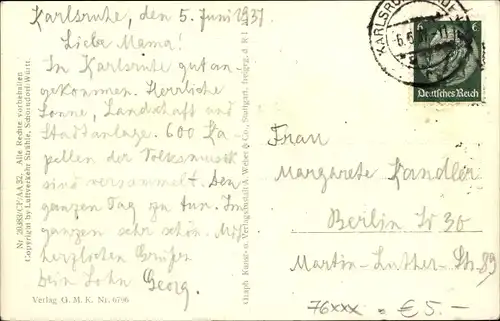 Karlsruhe, den 5. Juni 1937.
Liebe Mama!
In Karlsruhe gut an-
gekommen. Herrliche
Sonne, Landschaft und
Stadtanlage. 600 Ka-
pellen der Volksmusik
sind versammelt. Den
ganzen Tag zu tun. Im
ganzen sehr schön. Mit
herzlichen Grüßen
Dein Sohn Georg.
Verlag G. M. K. Nr. 6796
Nr. 28383/CF/AA 32. Alle Rechte vorbehalten
Copyright by Luftverkehr Strähle, Schorndorf-Württ.
Graph. Kunst- u. Verlagsanstalt A. Weber & Co., Stuttgart, freigeg. d. R. L. M.
KARLSRUHE
6.6.
Deutsches Reich
6
Frau
Margarete Kandler
Berlin W 30
Martin-Luther-Str. 89
76xxx = € 5.-